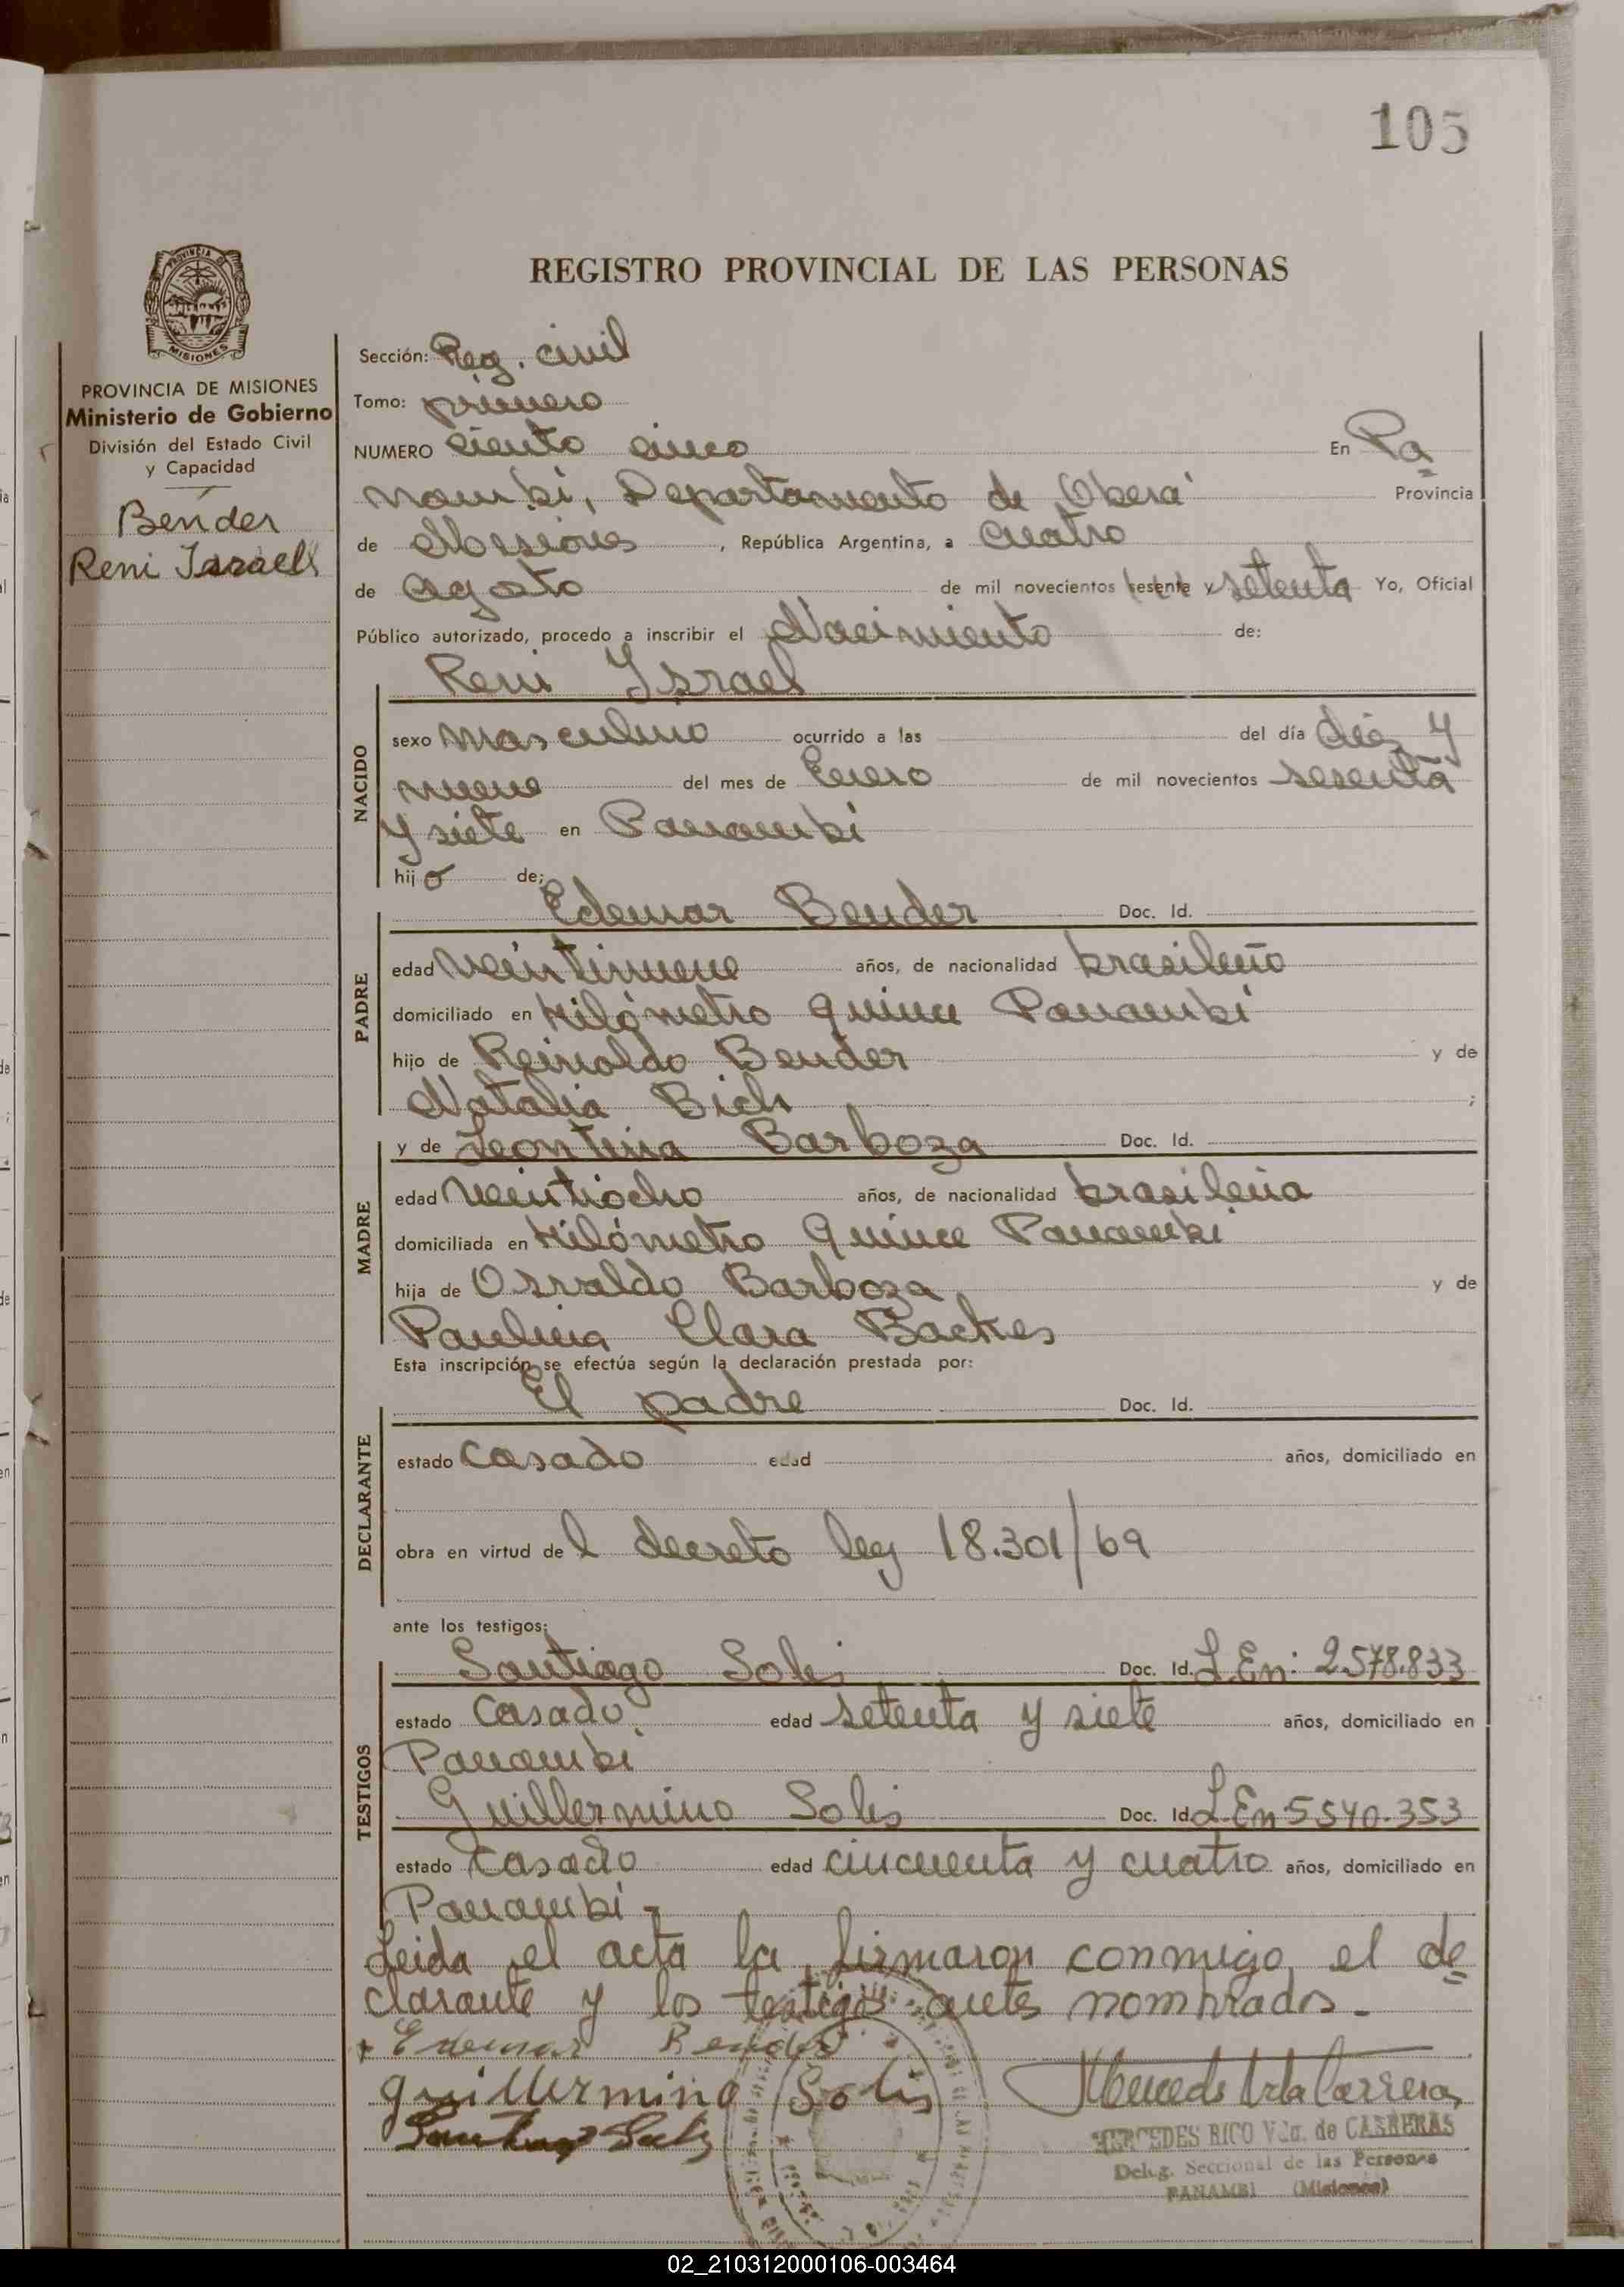 105
PROVINCIA DE
MISIONES
REGISTRO PROVINCIAL DE LAS PERSONAS
PROVINCIA DE MISIONES
Ministerio de Gobierno
División del Estado Civil
y Capacidad
Bender
Reni Israel
Sección: Reg. civil
Tomo: primero
NUMERO ciento cinco En Pa
nambi, Departamento de Oberá Provincia
de Misiones, República Argentina, a cuatro
de agosto de mil novecientos sesenta y setenta Yo, Oficial
Público autorizado, procedo a inscribir el Nacimiento de:
Reni Ysrael
NACIDO
sexo masculino ocurrido a las del día diez y
nueve del mes de Enero de mil novecientos sesenta
y siete en Panambi
hijo de;
PADRE
Edemar Bender Doc. Id.
edad veintinueve años, de nacionalidad brasileño
domiciliado en Kilómetro quince Panambi
hijo de Reinoldo Bender y de
Natalia Bich ;
MADRE
y de Leontina Barboza Doc. Id.
edad veintiocho años, de nacionalidad brasileña
domiciliada en Kilómetro quince Panambi
hija de Osvaldo Barboza y de
Paulina Clara Backes
Esta inscripción se efectúa según la declaración prestada por:
DECLARANTE
El padre Doc. Id.
estado casado edad años, domiciliado en
obra en virtud del decreto ley 18.301/69
ante los testigos:
TESTIGOS
Santiago Solis Doc. Id. L.En: 2.578.833
estado casado edad setenta y siete años, domiciliado en
Panambi
Guillermino Solis Doc. Id. L.En 5540.353
estado casado edad cincuenta y cuatro años, domiciliado en
Panambi -
Leida el acta la firmaron conmigo el de
clarante y los testigos antes nombrados.-
+ Edemar Bender
guillermino Solis
MERCEDES RICO Vda. de CARRERAS
Deleg. Seccional de las Personas
PANAMBI (Misiones)
02_210312000106-003464